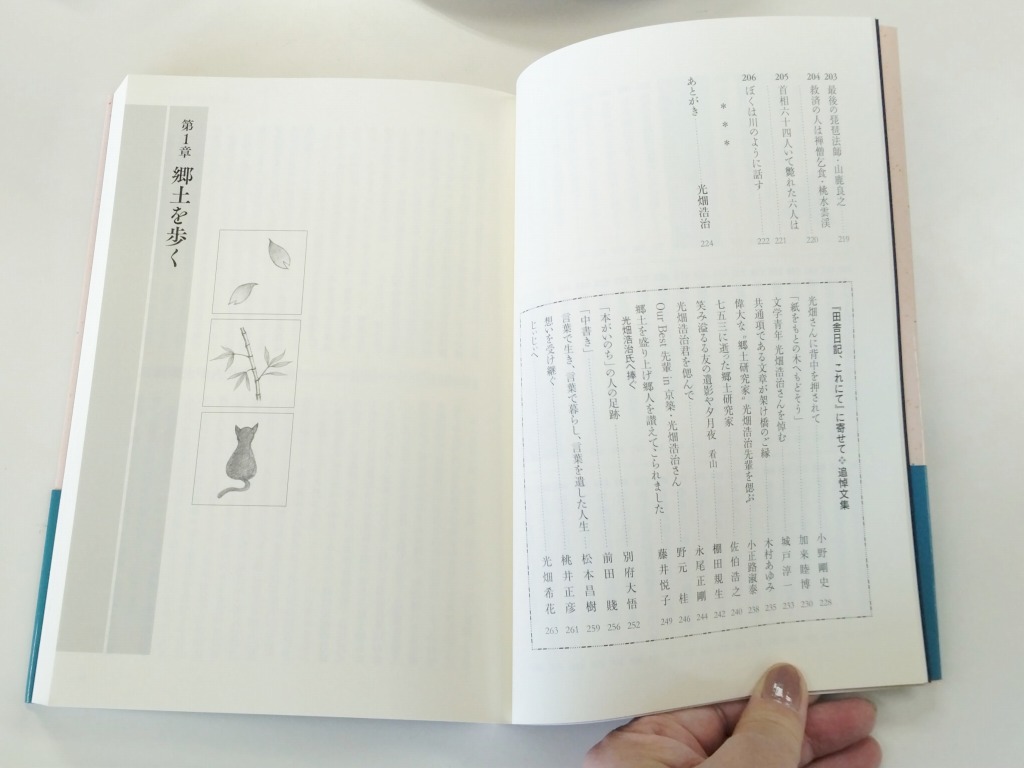 203 最後の琵琶法師・山鹿良之 219
204 救済の人は禅僧乞食・桃水雲渓 220
205 首相六十四人いて斃れた六人は 221
206 ぼくは川のように話す 222
＊ ＊ ＊
あとがき 光畑浩治 224
『田舎日記、これにて』に寄せて❖追悼文集
光畑さんに背中を押されて 小野剛史 228
「紙をもとの木へもどそう」 加来睦博 230
文学青年 光畑浩治さんを悼む 城戸淳一 233
共通項である文章が架け橋のご縁 木村あゆみ 235
偉大な“郷土研究家”光畑浩治先輩を偲ぶ 小正路淑泰 238
七五三に逝った郷土研究家 佐伯浩之 240
笑み溢るる友の遺影や夕月夜 看山 棚田規生 242
光畑浩治君を偲んで 永尾正剛 244
Our Best 先輩 in 京築・光畑浩治さん 野元 桂 246
郷土を盛り上げ郷人を讃えてこられました 藤井悦子 249
光畑浩治氏へ捧ぐ
「本がいのち」の人の足跡 別府大悟 252
「中書き」 前田 賤 256
言葉で生き、言葉で暮らし、言葉を遺した人生 松本昌樹 259
想いを受け継ぐ 桃井正彦 261
じぃじへ 光畑希花 263
第1章 郷土を歩く